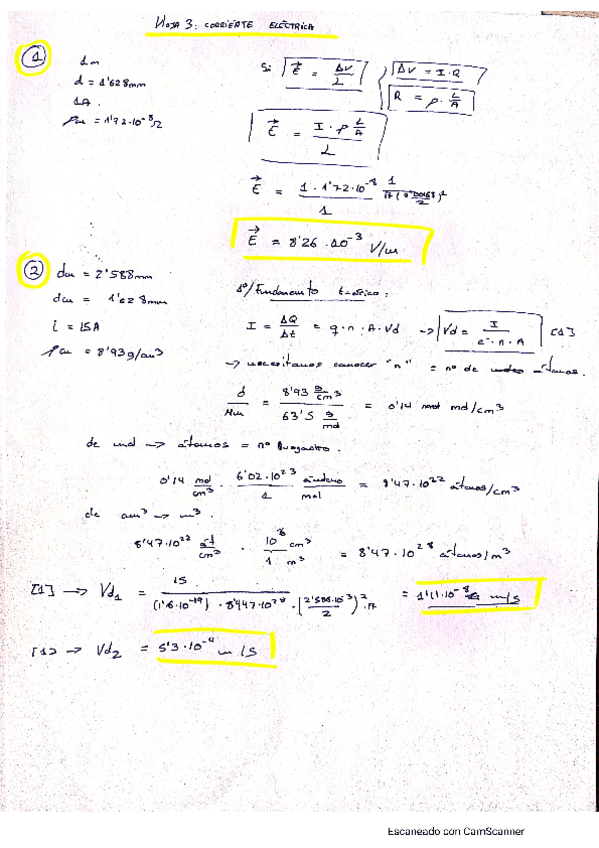 HOJA 3: CORRIENTE ELÉCTRICA
1
1m
d = 1'628mm
1A.
ρcu = 1'72·10^-8 Ω
Si E = ΔV/L { ΔV = I·R
R = ρ· L/A
E = I·ρ L/A / L
E = 1·1'72·10^-8 1/π(0'00163/2)^2 / 1
E = 8'26·10^-3 V/m
2
dcu = 2'588mm
dcu = 1'628mm
i = 15A
ρcu = 8'93g/cm3
1º/Fundamento teórico:
I = ΔQ/Δt = q·n·A·Vd → Vd = I/e-·n·A [1]
→ necesitamos conocer "n" = nº de átomos.
d/Mcu = 8'93 g/cm3 / 63'5 g/mol = 0'14 mol/cm3
de mol → átomos = nº Avogadro.
0'14 mol/cm3 · 6'02·10^23/1 átomos/mol = 8'47·10^22 átomos/cm3
de cm3 → m3.
8'47·10^22 át/cm3 · 10^6/1 cm3/m3 = 8'47·10^28 átomos/m3
[1] → Vd1 = 15 / (1'6·10^-19)·8'447·10^28·(2'588·10^-3/2)^2·π = m/s
[1] → Vd2 = 5'3·10^-4 m/s
Escaneado con CamScanner